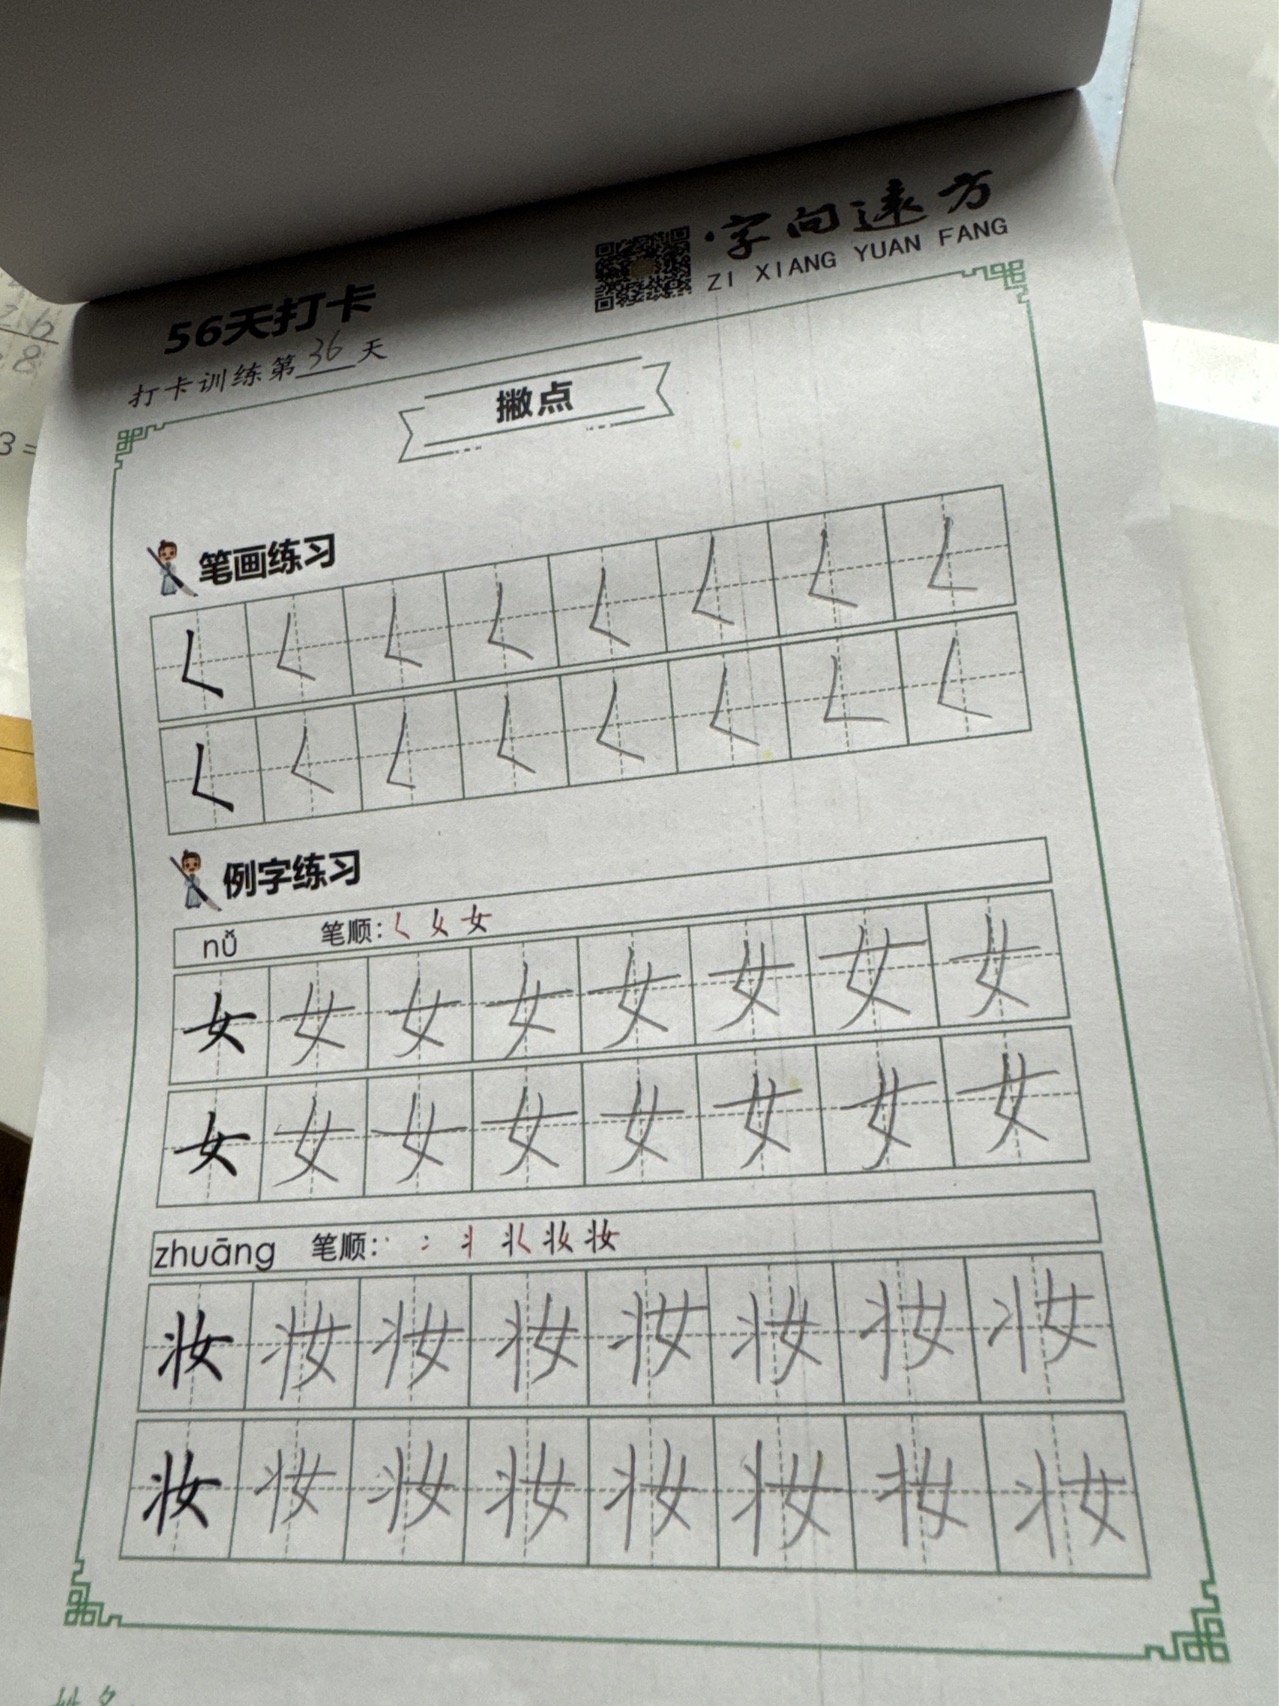 字向远方
ZI XIANG YUAN FANG
56天打卡
打卡训练第36天
撇点
笔画练习
𡿨 𡿨 𡿨 𡿨 𡿨 𡿨 𡿨 𡿨
𡿨 𡿨 𡿨 𡿨 𡿨 𡿨 𡿨 𡿨
例字练习
nǚ 笔顺:
女 女 女 女 女 女 女 女
女 女 女 女 女 女 女 女
zhuāng 笔顺:
妆 妆 妆 妆 妆 妆 妆 妆
妆 妆 妆 妆 妆 妆 妆 妆